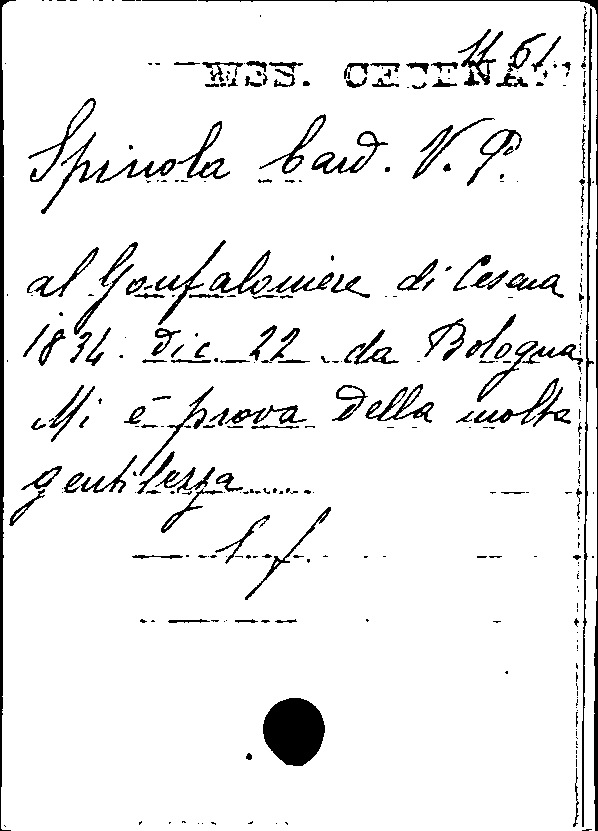 11 61
MSS. CECENATI
Spinola Card. V. P.
al Gonfaloniere di Cesena
1834. dic. 22. da Bologna
Mi è prova della molta
gentilezza.....
l. f.